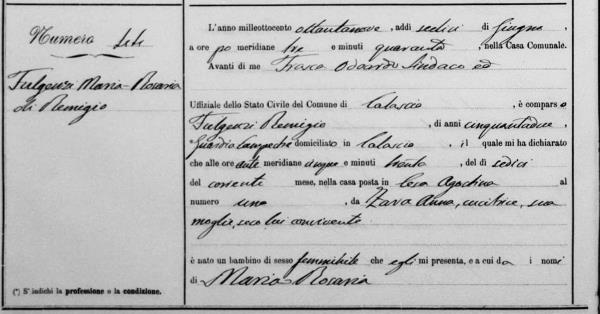 Numero
Fulgenzi Maria-Rosaria
di Remigio
(*) S'indichi la professione o la condizione.
L'anno milleottocento ottantanove, addì sedici di Giugno,
a ore po meridiane tre e minuti quaranta, nella Casa Comunale.
Avanti di me Frasca Odoardo Sindaco ed
Uffiziale dello Stato Civile del Comune di Calascio, è comparso
Fulgenzi Remigio, di anni cinquantadue,
Guardia Campestre domiciliato in Calascio, il quale mi ha dichiarato
che alle ore ante meridiane cinque e minuti trenta, del dì sedici
del corrente mese, nella casa posta in al
numero uno, da Zara Anna, cucitrice, sua
moglie, seco lui convivente
è nato un bambino di sesso femminile che egli mi presenta, e a cui da i nomi
di Maria Rosaria